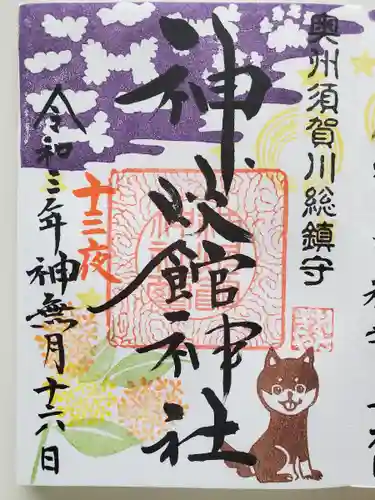 奥州須賀川総鎮守
神炊館神社
十三夜
令和三年神無月十六日